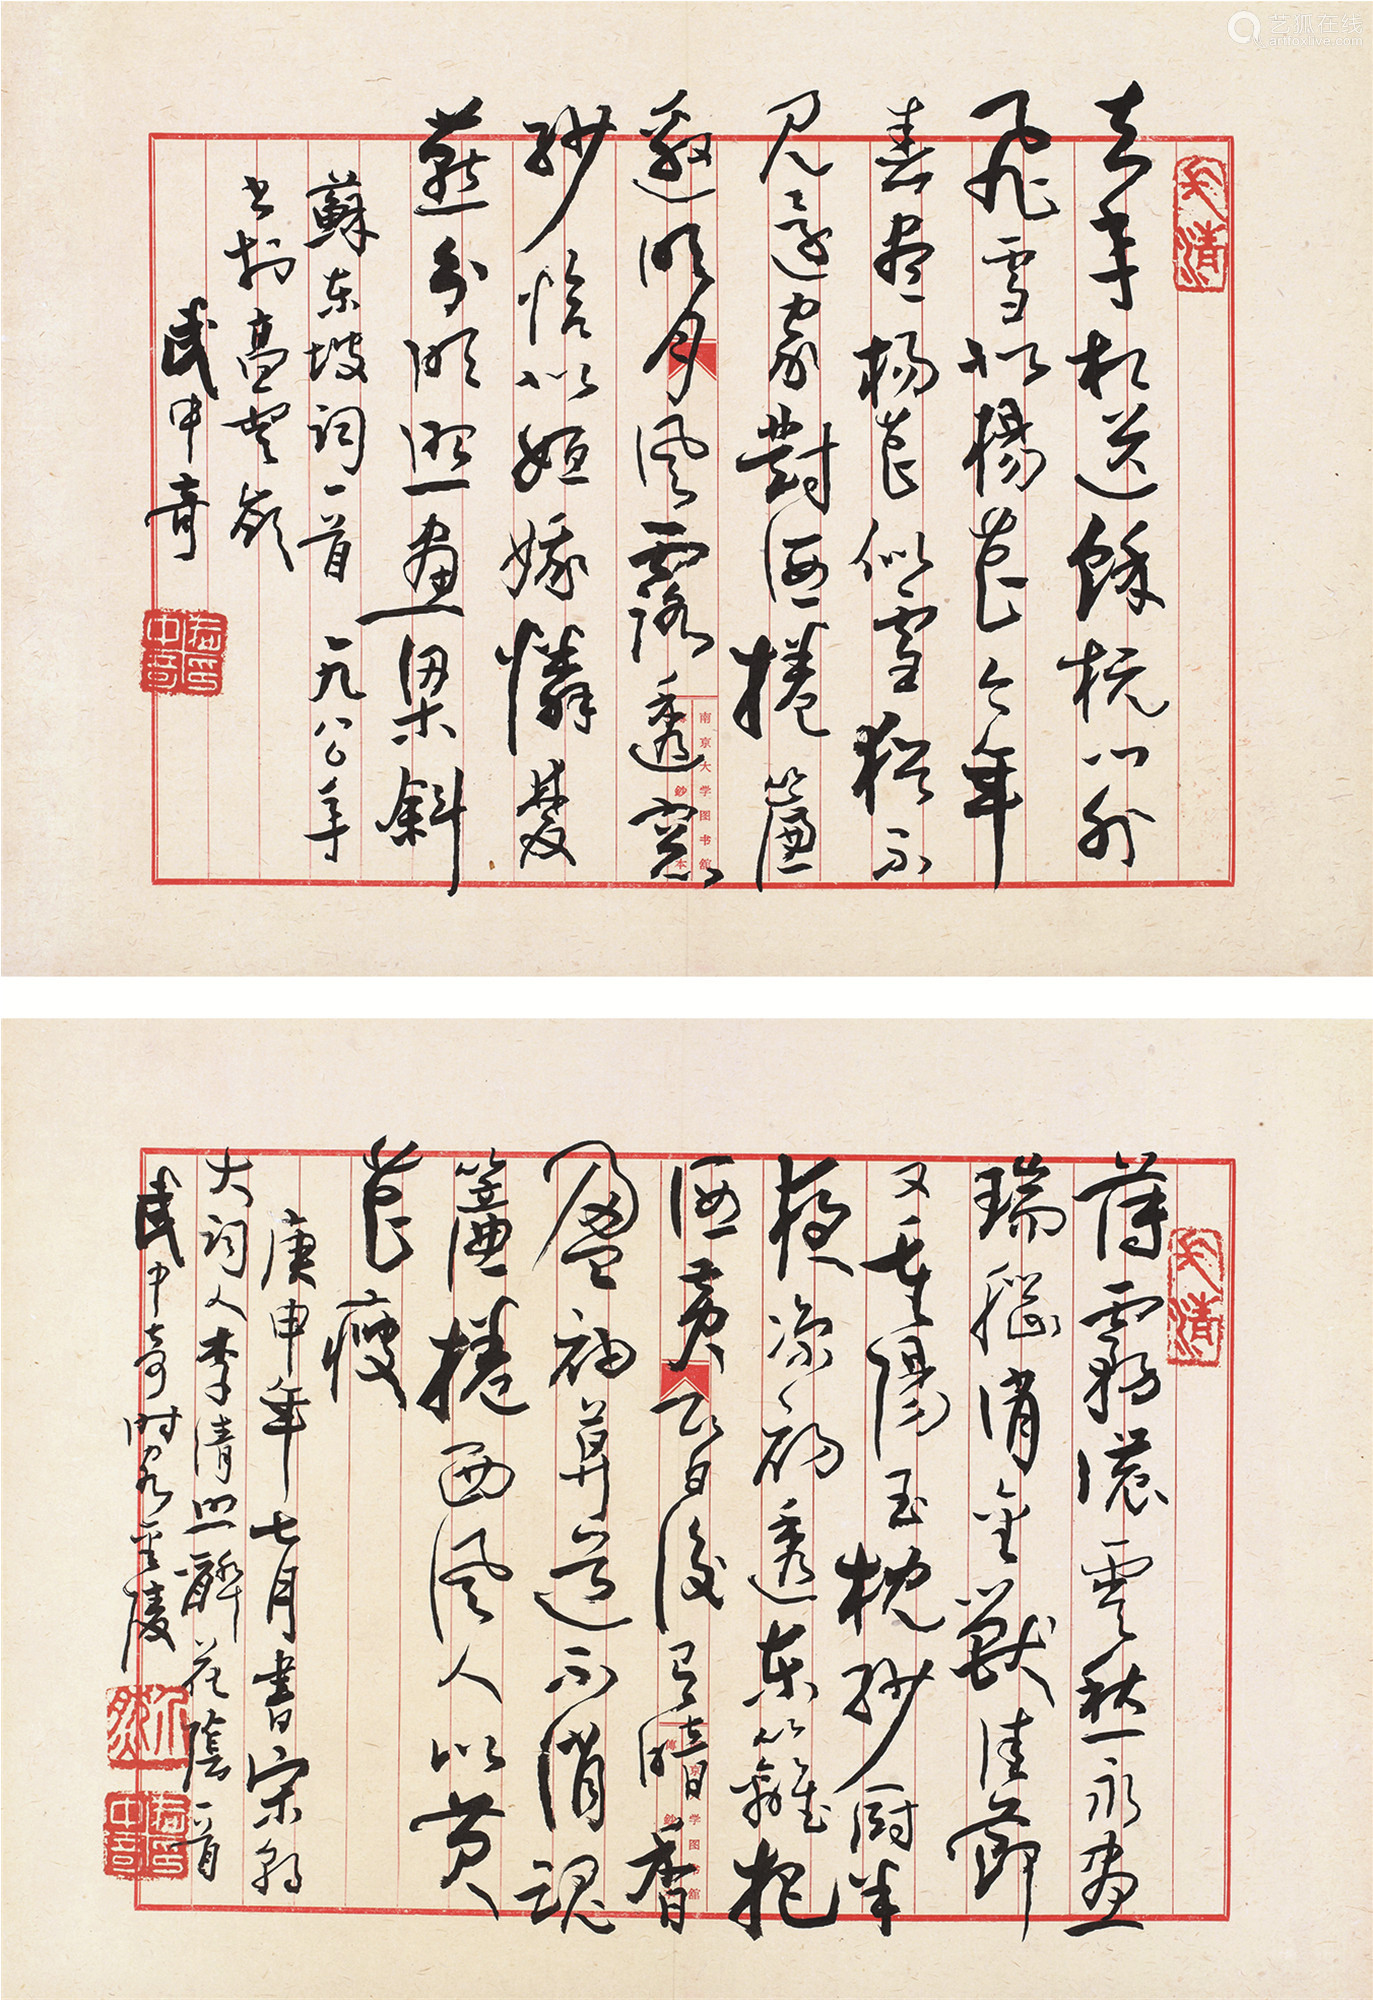 去年相送餘杭门外
飛雪似楊花今年
春盡楊花似雪猶不
見還家對酒捲簾
邀明月風露透窗
紗恰似姮娥憐雙
燕分明照畫梁斜
蘇東坡詞一首 一九八〇年
書於
武中奇
武中奇印
南京大学图书館
鈔本
薄霧濃雲愁永晝
瑞腦消金獸佳節
又重陽玉枕紗厨半
夜涼初透東籬把
酒黃昏後有暗香
盈袖莫道不消魂
簾捲西風人似黃
花瘦
庚申年七月書宋朝
大詞人李清照醉花陰一首
武中奇時客金陵
武中奇印
艺狐在线
artfoxlive.com